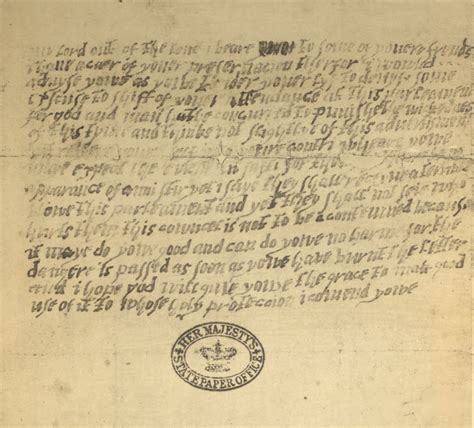 my lord out of the loue i beare to some of youere frends
i haue a caer of youer preseruacion therfor i would
aduyse yowe as yowe tender youer lyf to deuys some
excuse to shift of youer attendance at this parleament
for god and man hathe concurred to punishe the wickednes
of this tyme and thinke not slightlye of this aduertisment
youre contri wheare yowe
expect the euent in safti for
apparance of anni stir yet i saye they shall receyue a terrible
blowe this parleament and yet they shall not seie who
hurts them this councel is not to be contemned because
it maye do yowe good and can do yowe no harme for the
dangere is passed as soon as yowe haue burnt the letter
and i hope god will giue yowe the grace to mak good
use of it to whose holy proteccion i comend yowe
HER MAJESTY'S
STATE PAPER OFFICE